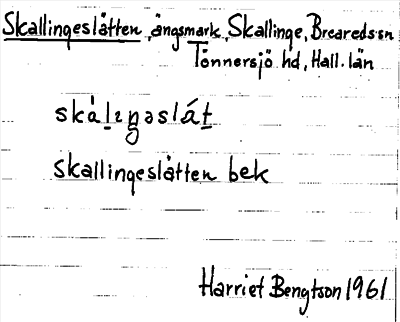 Skallingeslåtten, ängsmark, Skallinge, Breareds sn
Tönnersjö hd, Hall. län
skàlɪŋəslát
skallingeslåtten bek
Harriet Bengtson 1961